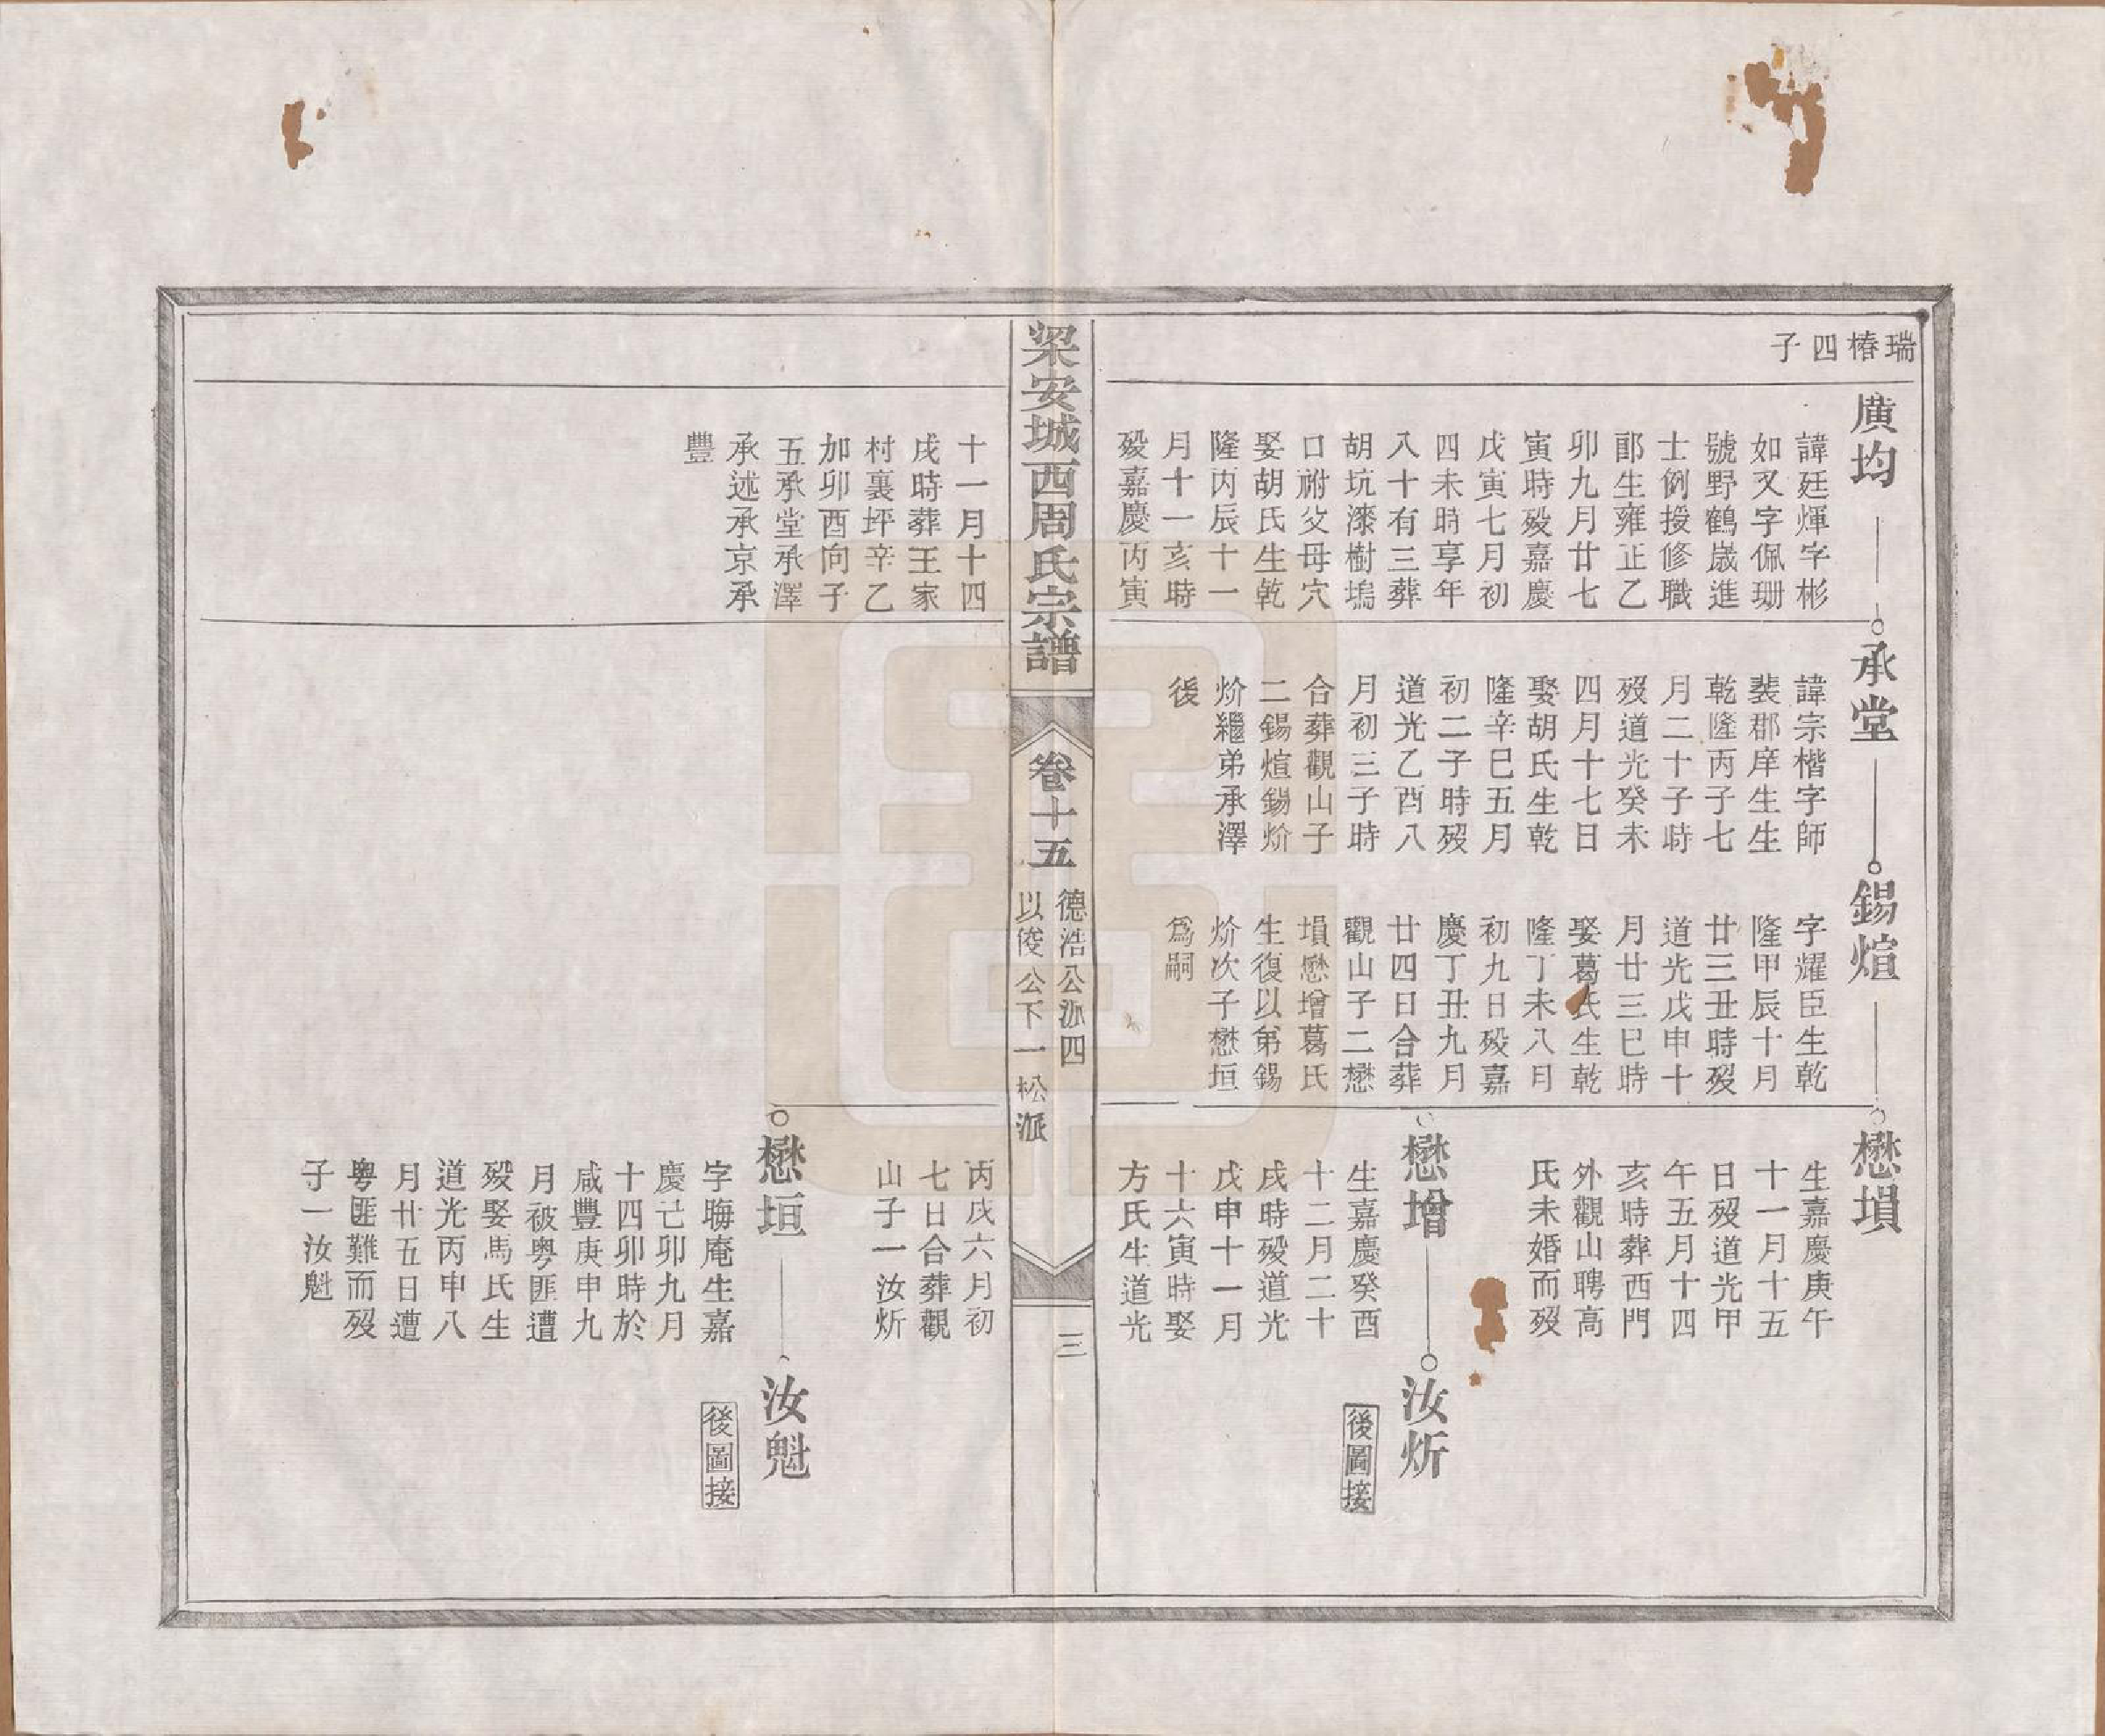 瑞椿四子
廣均
諱廷煇字彬
如又字佩珊
號野鶴歲進
士例授修職
郎生雍正乙
卯九月廿七
寅時歿嘉慶
戊寅七月初
四未時享年
八十有三葬
胡坑漆樹塢
口祔父母穴
娶胡氏生乾
隆丙辰十一
月十一亥時
歿嘉慶丙寅
承堂
諱宗楷字師
裴郡庠生生
乾隆丙子七
月二十子時
歿道光癸未
四月十七日
娶胡氏生乾
隆辛巳五月
初二子時歿
道光乙酉八
月初三子時
合葬觀山子
二錫煊錫炌
炌繼弟承澤
後
錫煊
字耀臣生乾
隆甲辰十月
廿三丑時歿
道光戊申十
月廿三巳時
娶葛氏生乾
隆丁未八月
初九日歿嘉
慶丁丑九月
廿四日合葬
觀山子二懋
塤懋增葛氏
生復以弟錫
炌次子懋垣
爲嗣
懋塤
生嘉慶庚午
十一月十五
日歿道光甲
午五月十四
亥時葬西門
外觀山聘高
氏未婚而歿
懋增
生嘉慶癸酉
十二月二十
戌時歿道光
戊申十一月
十六寅時娶
方氏生道光
汝炘
後圖接
梁安城西周氏宗譜
卷十五
德浩公派四
以俊公下一松派
三
十一月十四
戌時葬王家
村裏坪辛乙
加卯酉向子
五承堂承澤
承述承京承
豐
丙戌六月初
七日合葬觀
山子一汝炘
懋垣
字晦庵生嘉
慶己卯九月
十四卯時於
咸豐庚申九
月被粤匪遭
歿娶馬氏生
道光丙申八
月廿五日遭
粤匪難而歿
子一汝魁
汝魁
後圖接